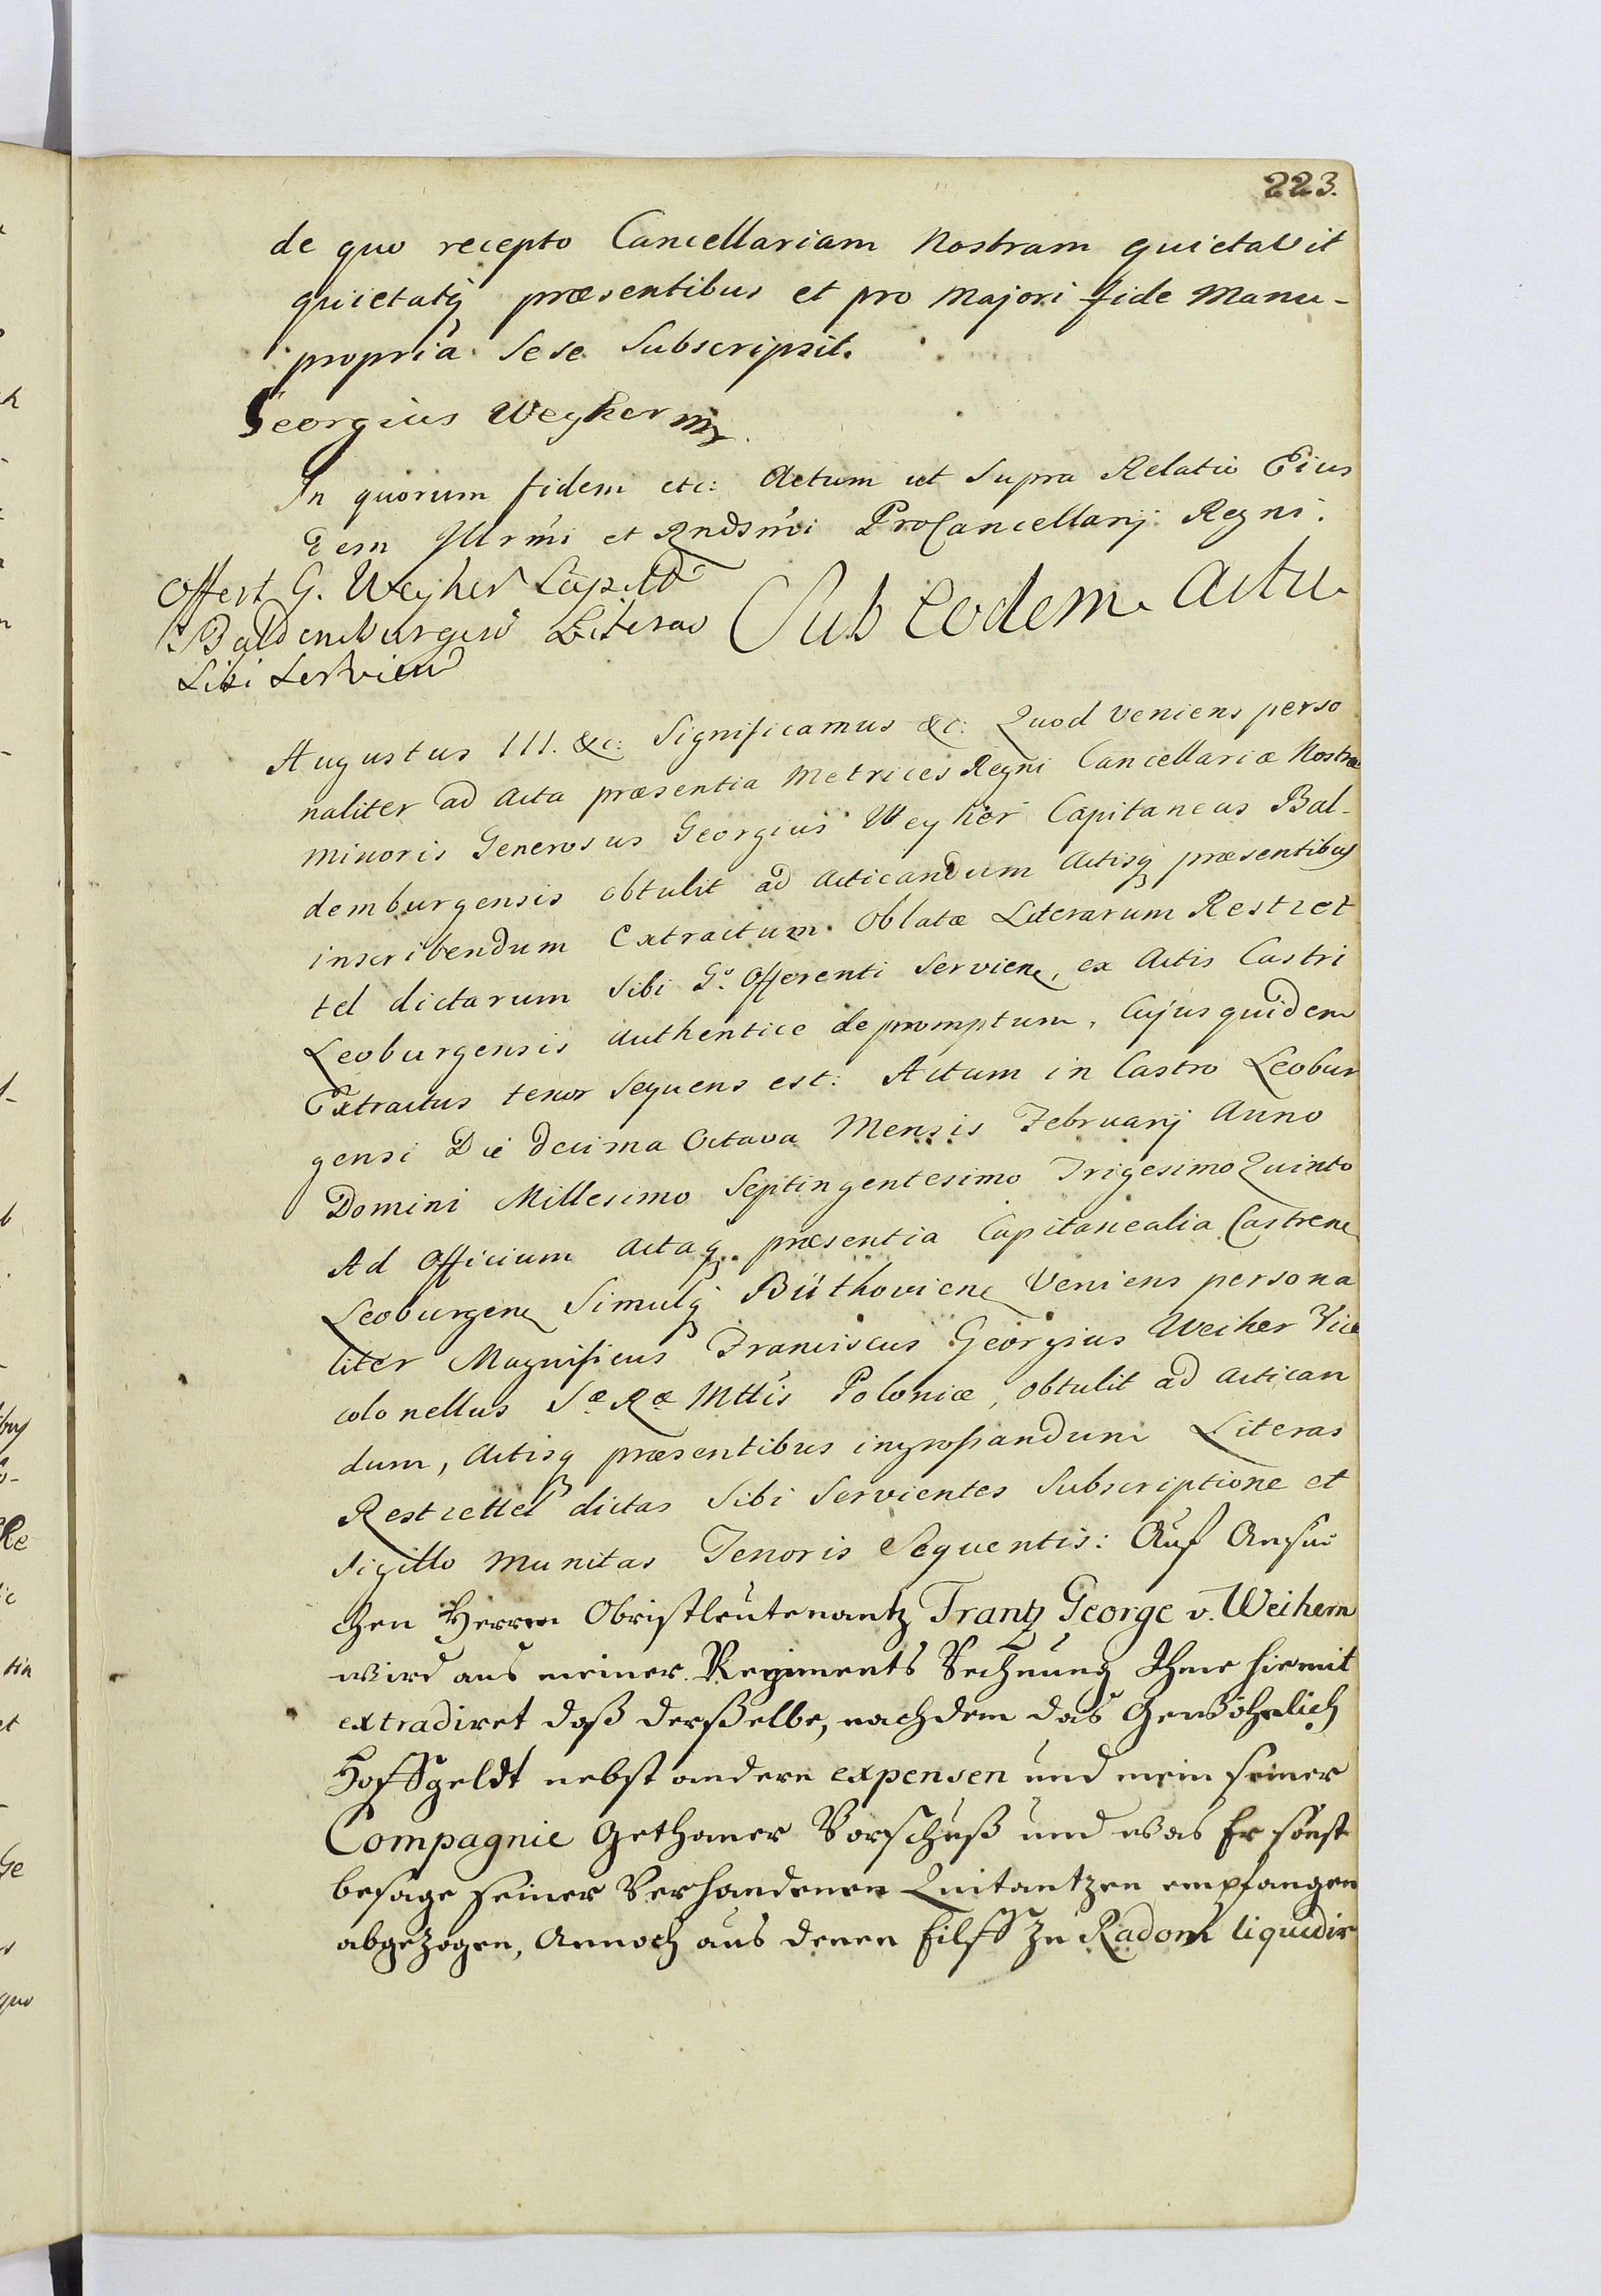 223.
de quo recepto Cancellariam Nostram quietavit
quietatq præsentibus et pro Majori fide Manu-
propria Sese Subscripsit.
Georgius Weyher mp.
In quorum fidem etc: Actum ut Supra Relatio Eius
dem Illrmi et Rndsmi ProCancellarij Regni.
Offert G. Weyher Capitt
Baldenburgen Literas
Sibi Servien
Sub eodem Actu
Augustus III. &c: Significamus &c: Quod Veniens perso
naliter ad Acta præsentia Metrices Regni Cancellariæ Nostræ
Minoris Generosus Georgius Weyher Capitaneus Bal-
demburgensis obtulit ad Acticandum Actisq præsentibus
inscribendum Extractum Oblatæ Literarum Restzet
tel dictarum Sibi Go. Offerenti Servien, ex Actis Castri
Leoburgensis Authentice depromptum, Cujus quidem
Extractus tenor Sequens est: Actum in Castro Leobur
gensi Die decima Octava Mensis Februarij Anno
Domini Millesimo Septingentesimo Trigesimo Quinto
Ad Officium Actaq. præsentia Capitanealia Castren
Leoburgen Simulq Büthovien Veniens persona
liter Magnificus Franciscus Georgius Weiher Vice
colonellus Sæ Ræ Mttis Poloniæ, obtulit ad Actican
dum, Actisq præsentibus ingrossandum Literas
Restzettel dictas Sibi Servientes Subscriptione et
Sigillo Munitas Tenoris Sequentis: Auf Ansu
chen Herren Obristleutenantz Frantz George v. Weihern
wird aus meiner Regiments Rechnung Ihme hiemit
extradiret daß derßelbe, nachdem das Gewöhnlich
Hoffgeldt nebst andern expensen und mein seiner
Compagnie Gethaner Vorschuß und was Er sonst
besage seiner Verhandenen Quitantzen empfangen
abgezogen, Annoch aus denen Eilff zu Radom liquidir